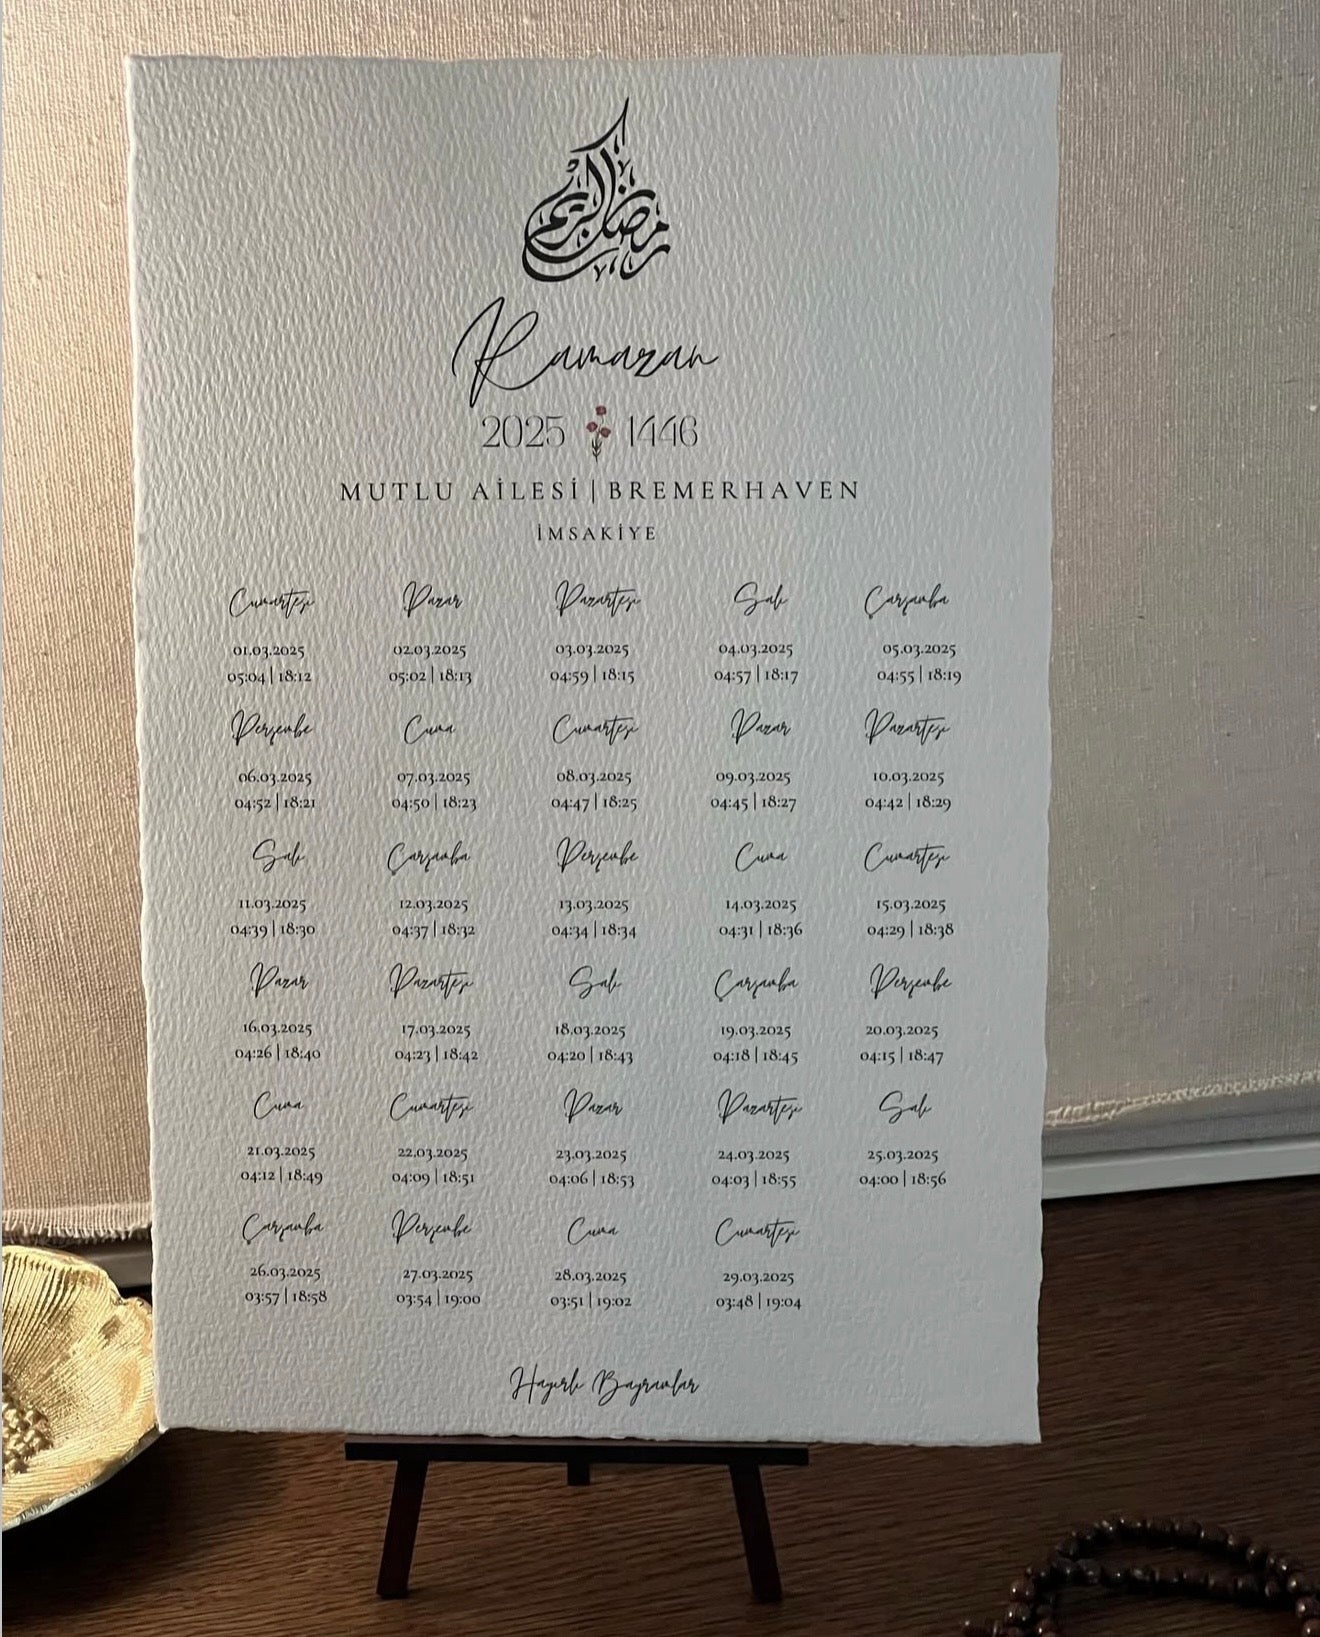 رمضان الكريم
Ramazan
2025 1446
MUTLU AİLESİ | BREMERHAVEN
İMSAKİYE
Cumartesi Pazar Pazartesi Salı Çarşamba
01.03.2025 02.03.2025 03.03.2025 04.03.2025 05.03.2025
05:04 | 18:12 05:02 | 18:13 04:59 | 18:15 04:57 | 18:17 04:55 | 18:19
Perşembe Cuma Cumartesi Pazar Pazartesi
06.03.2025 07.03.2025 08.03.2025 09.03.2025 10.03.2025
04:52 | 18:21 04:50 | 18:23 04:47 | 18:25 04:45 | 18:27 04:42 | 18:29
Salı Çarşamba Perşembe Cuma Cumartesi
11.03.2025 12.03.2025 13.03.2025 14.03.2025 15.03.2025
04:39 | 18:30 04:37 | 18:32 04:34 | 18:34 04:31 | 18:36 04:29 | 18:38
Pazar Pazartesi Salı Çarşamba Perşembe
16.03.2025 17.03.2025 18.03.2025 19.03.2025 20.03.2025
04:26 | 18:40 04:23 | 18:42 04:20 | 18:43 04:18 | 18:45 04:15 | 18:47
Cuma Cumartesi Pazar Pazartesi Salı
21.03.2025 22.03.2025 23.03.2025 24.03.2025 25.03.2025
04:12 | 18:49 04:09 | 18:51 04:06 | 18:53 04:03 | 18:55 04:00 | 18:56
Çarşamba Perşembe Cuma Cumartesi
26.03.2025 27.03.2025 28.03.2025 29.03.2025
03:57 | 18:58 03:54 | 19:00 03:51 | 19:02 03:48 | 19:04
Hayırlı Bayramlar